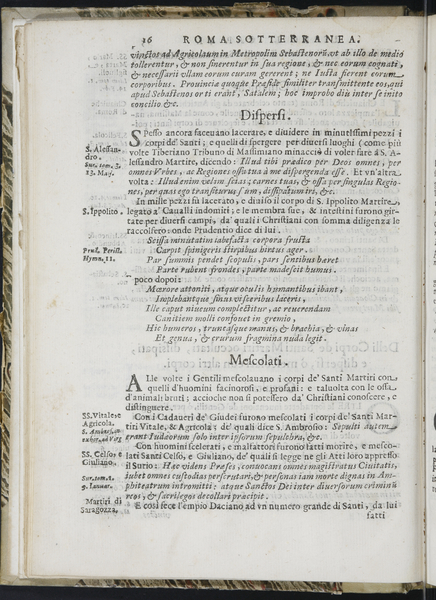 36 ROMA SOTTERRANEA.
vinctos ad Agricolaum in Metropolim Sebastenorũ aut ab illo de medio
tollerentur, & non sinerentur in sua regione, & nec eorum cognati,
& necessarij vllam eorum curam gererent; ne Iusta fierent eorum
corporibus. Prouincia quoque Præside similiter transmittente eos, qui
apud Sebastenos orti erant, Satalem; hoc improbo diu inter se inito
concilio &c.
Dispersi.
Spesso ancora faceuano lacerare, e diuidere in minutissimi pezzi i
corpi de' Santi; e quelli disperger per diuersi luoghi (come più
S. Alessandro.
volte Tiberiano Tribuno di Massimiano minacciò di voler fare à S. A-
Sur. tom. 3.
lessandro Martire, dicendo: Illud tibi prædico per Deos omnes, per
13. Maij.
omnes Vrbes, ac Regiones ossa tua à me dispergenda esse. Et vn'altra
volta: Illud enim velim scias; carnes tuas, & ossa per singulas Regio-
nes, per quas ego transiturus sum, dissipatum iri, &c.
In mille pezzi fù lacerato, e diuiso il corpo di S. Ippolito Martire,
S. Ippolito.
legato à Caualli indomiti; e le membra sue, & intestini furono gir-
tate per diuersi campi, da' quali i Christiani con somma diligenza le
raccolsero: onde Prudentio dice di lui.
Scissa minutatim labefacta corpora frusta
Prud. Perist.
Carpit spinigeris stirpibus hirtus ager.
Hymn. 11.
Par summis pendet scopulis, pars sentibus hæret
Parte rubent frondes, parte madescit humus.
poco dopoi:
Mœrore attoniti, atque oculis rimantibus ibant,
Implebantque sinus visceribus laceris,
Ille caput niueum complectitur, ac reuerendam
Canitiem molli confouet in gremio,
Hic humeros, truncasque manus, & brachia, & vlnas
Et genua, & crurum fragmina nuda legit.
Mescolati.
Alle volte i Gentili mescolauano i corpi de' Santi Martiri con
quelli d'huomini facinorosi, e profani: e taluolta con le ossa
d'animali bruti; accioche non si potessero da' Christiani conoscere, e
distinguere.
SS. Vitale, e
Con i Cadaueri de' Giudei furono mescolati i corpi de' Santi Mar-
Agricola.
tiri Vitale, & Agricola; de' quali dice S. Ambrosio: Sepulti autem
erant Iudæorum solo inter ipsorum sepulchra, &c.
Con huomini scelerati, e malfattori furono fatti morire, e mesco-
SS. Celso, e
lati Santi Celso, e Giuliano, de' quali si legge ne gli Atti loro appresso
Giuliano.
il Surio: Hæc videns Præses, conuocans omnes magistratus Ciuitatis,
Sur. tom. 1.
iubet omnes custodias perscrutari, & personas iam morte dignas in Am-
9. Ianuar.
phiteatrum intromitti: atque Sanctos Dei inter diuersorum criminũ
reos, & sacrilegos decollari præcipit.
Martiri di
E così fece l'empio Daciano ad vn numero grande di Santi, da lui
Saragozza.
fatti